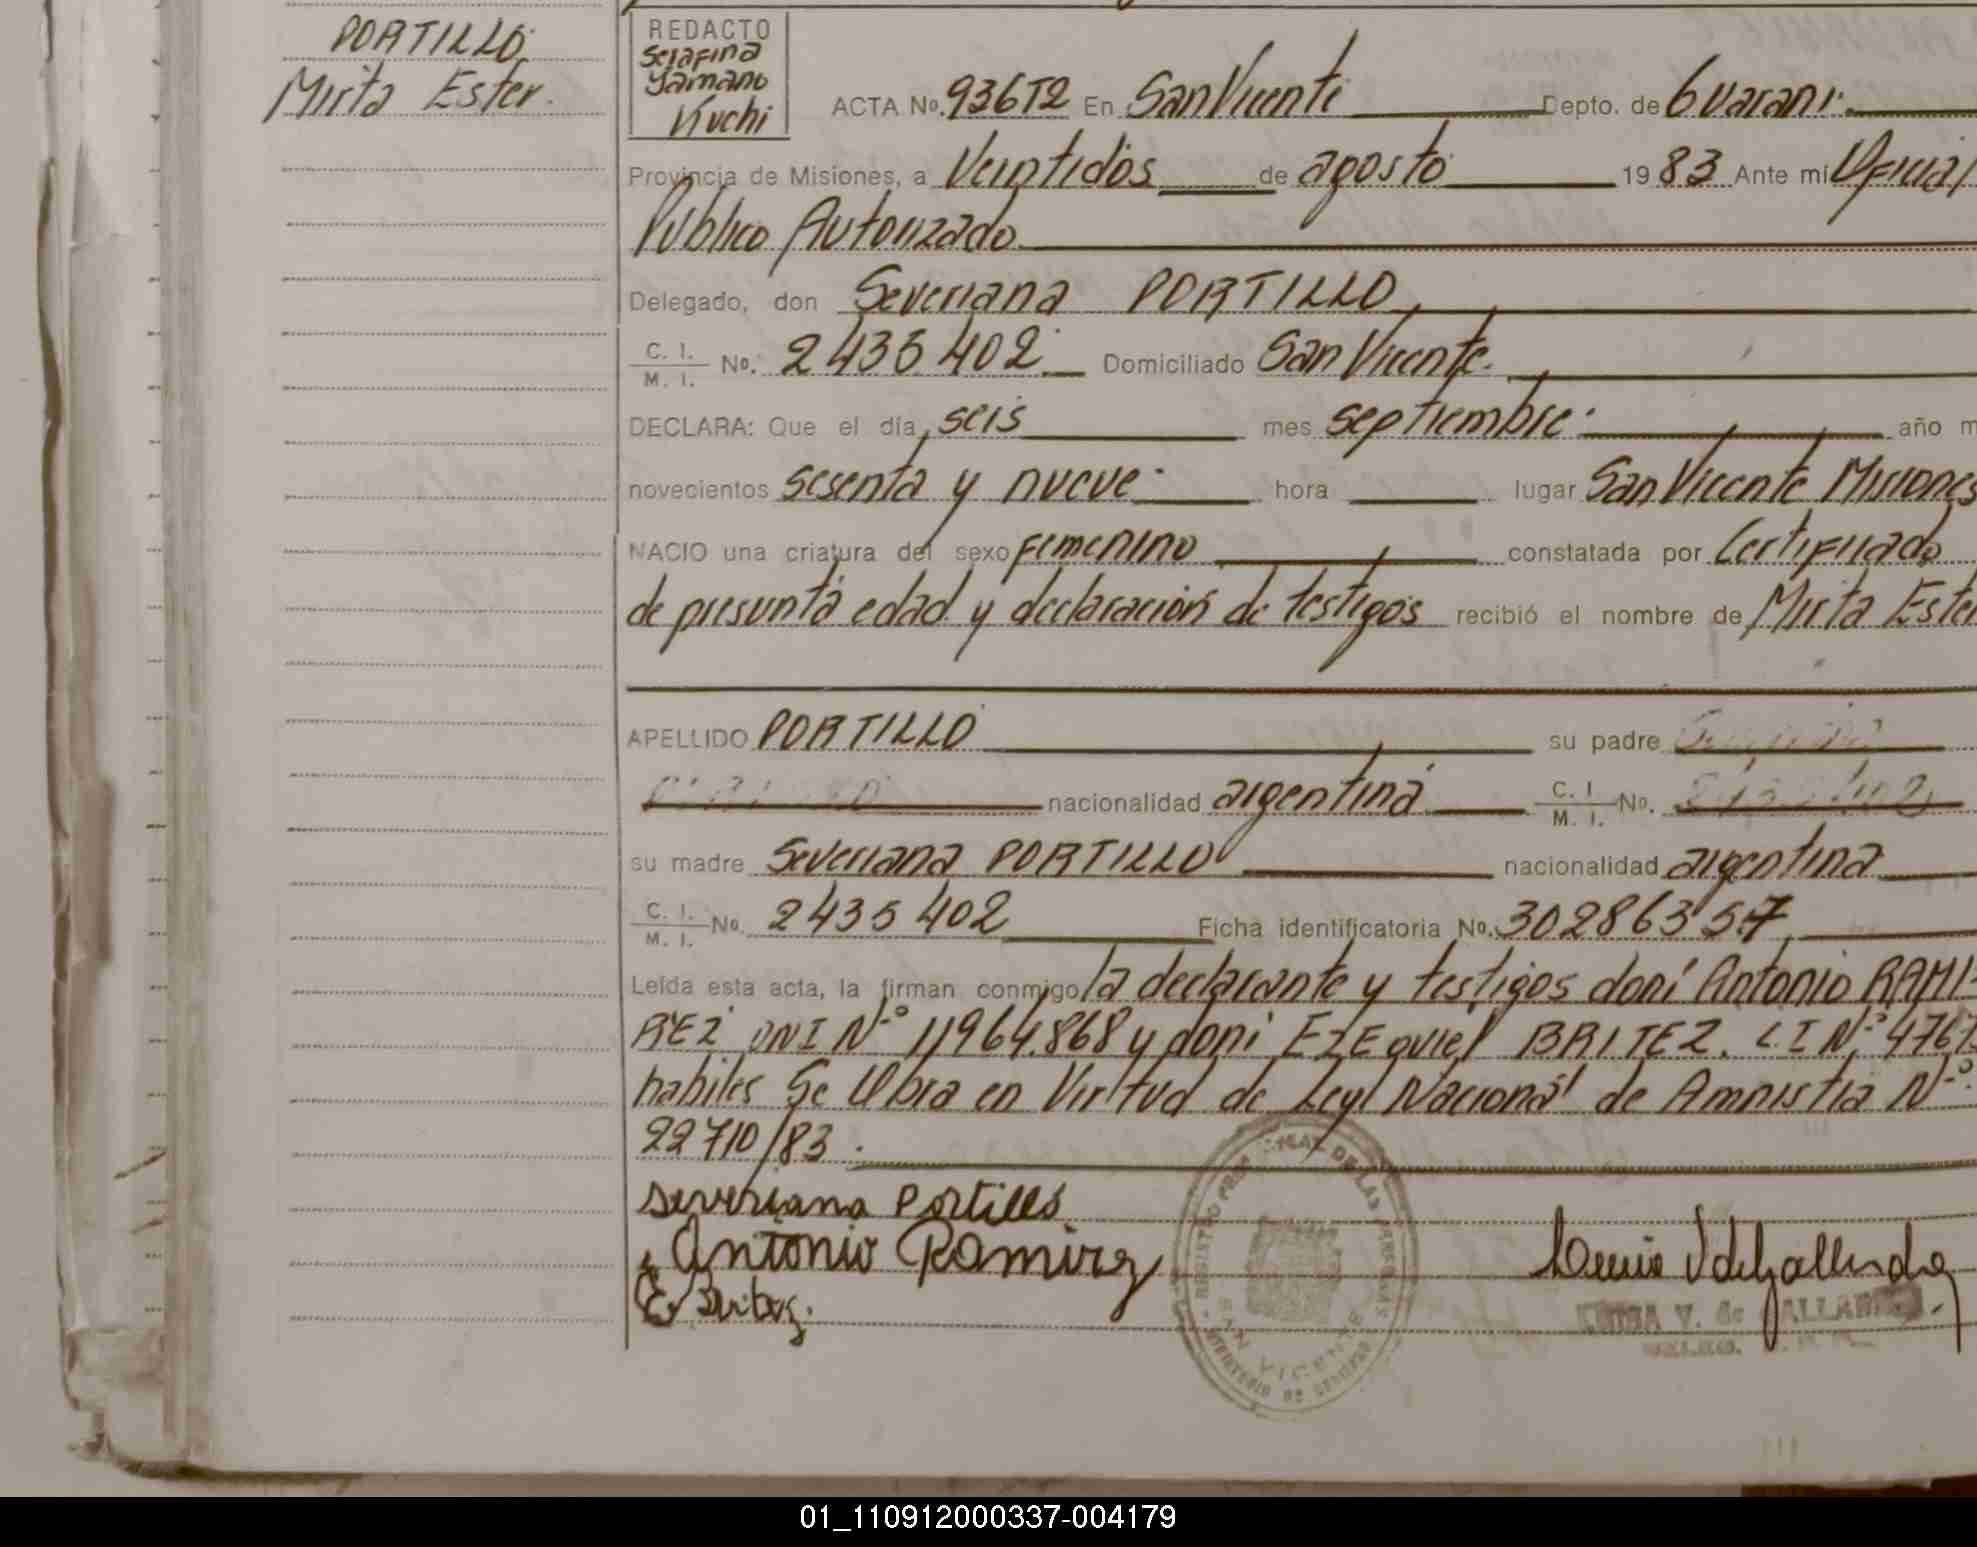 PORTILLO
Mirta Ester.
REDACTO
Serafina
Yamano
Kuchi
ACTA No. 936T2 En San Vicente Depto. de Guarani
Provincia de Misiones, a Veintidós de agosto 1983 Ante mi Oficial
Público Autorizado
Delegado, don Severiana PORTILLO
C. I. / M. I. No. 2435402 Domiciliado San Vicente.
DECLARA: Que el día seis mes septiembre año m
novecientos sesenta y nueve hora lugar San Vicente Misiones
NACIO una criatura del sexo femenino constatada por Certificado
de presunta edad y declaración de testigos recibió el nombre de Mirta Ester
APELLIDO PORTILLO su padre
nacionalidad argentina C. I. / M. I. No.
su madre Severiana PORTILLO nacionalidad argentina
C. I. / M. I. No. 2435402 Ficha identificatoria No. 30286357
Leída esta acta, la firman conmigo la declarante y testigos don: Antonio RAMI-
REZ DNI Nº 11964.868 y don: EZEquiel BRITEZ. C.I Nº 4767
habiles Se Labra en Virtud de Ley Nacional de Amnistia Nº
22710/83.
Severiana Portillo
Antonio Ramirez
E. Britez.
SAN VICENTE
V. de GALLAR
01_110912000337-004179